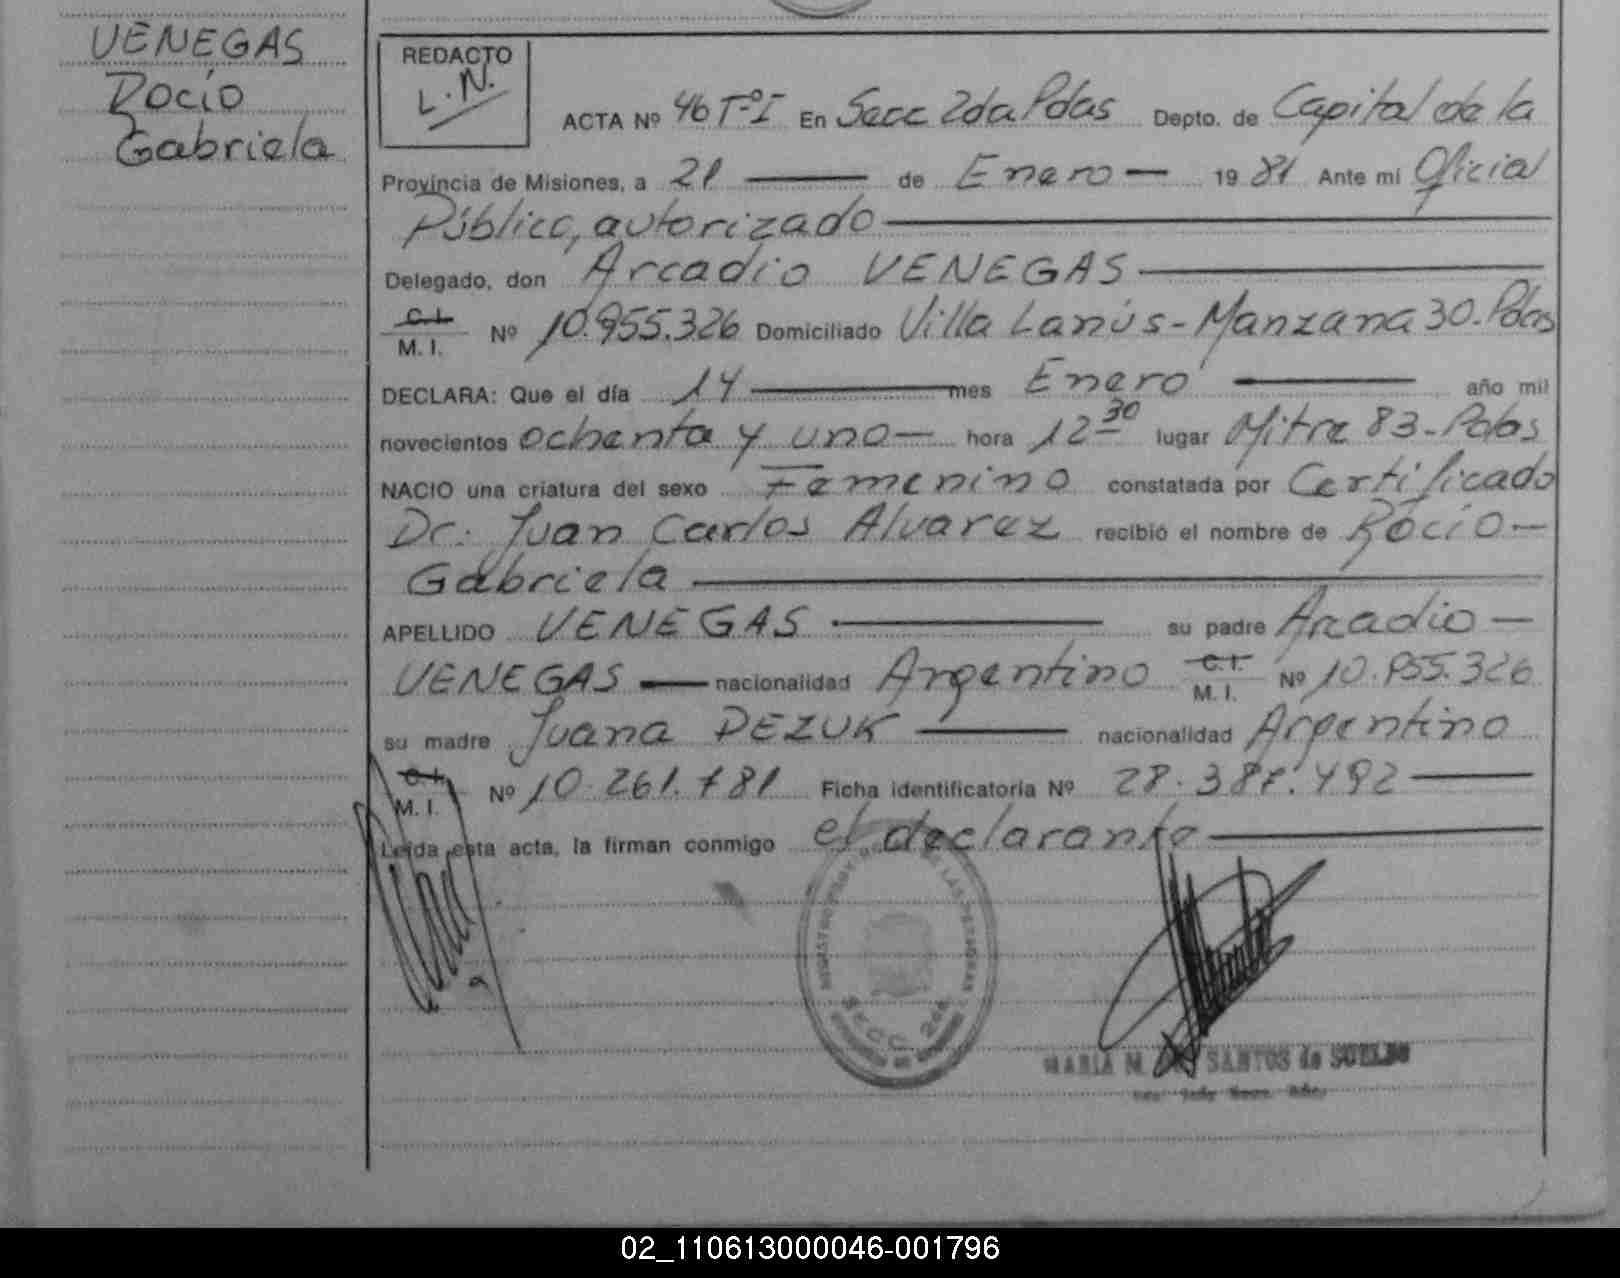 VENEGAS
Rocío
Gabriela
REDACTO
L.N.
ACTA Nº 46 Tº I En Secc 2da Pdas Depto. de Capital de la
Provincia de Misiones, a 21 de Enero 1981 Ante mi Oficial
Público, autorizado
Delegado, don Arcadio VENEGAS
C.I.
M. I. Nº 10.955.326 Domiciliado Villa Lanús - Manzana 30. Pdas
DECLARA: Que el día 14 mes Enero año mil
novecientos ochenta y uno hora 12 30 lugar Mitre 83 - Pdas
NACIO una criatura del sexo Femenino constatada por Certificado
Dr. Juan Carlos Alvarez recibió el nombre de Rocío
Gabriela
APELLIDO VENEGAS su padre Arcadio
VENEGAS nacionalidad Argentino C.I.
M. I. Nº 10.955.326
su madre Juana DEZUK nacionalidad Argentino
C.I.
M. I. Nº 10.261.781 Ficha identificatoria Nº 28.387.492
Leída esta acta, la firman conmigo el declarante
SECC. 2da
MARIA M. SANTOS de SUELDO
02_110613000046-001796